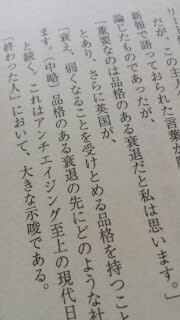 リー
だが、この主人
新報で語っておられた言葉が
「重要なのは品格のある衰退だと私は思います。」
論じたものであったが、
とあり、さらに英国が、
「衰え、弱くなることを受けとめる品格を持つこと
ます。(中略)品格のある衰退の先にどのような社
と続く。これはアンチエイジング至上の現代日
「終わった人」において、大きな示唆である。